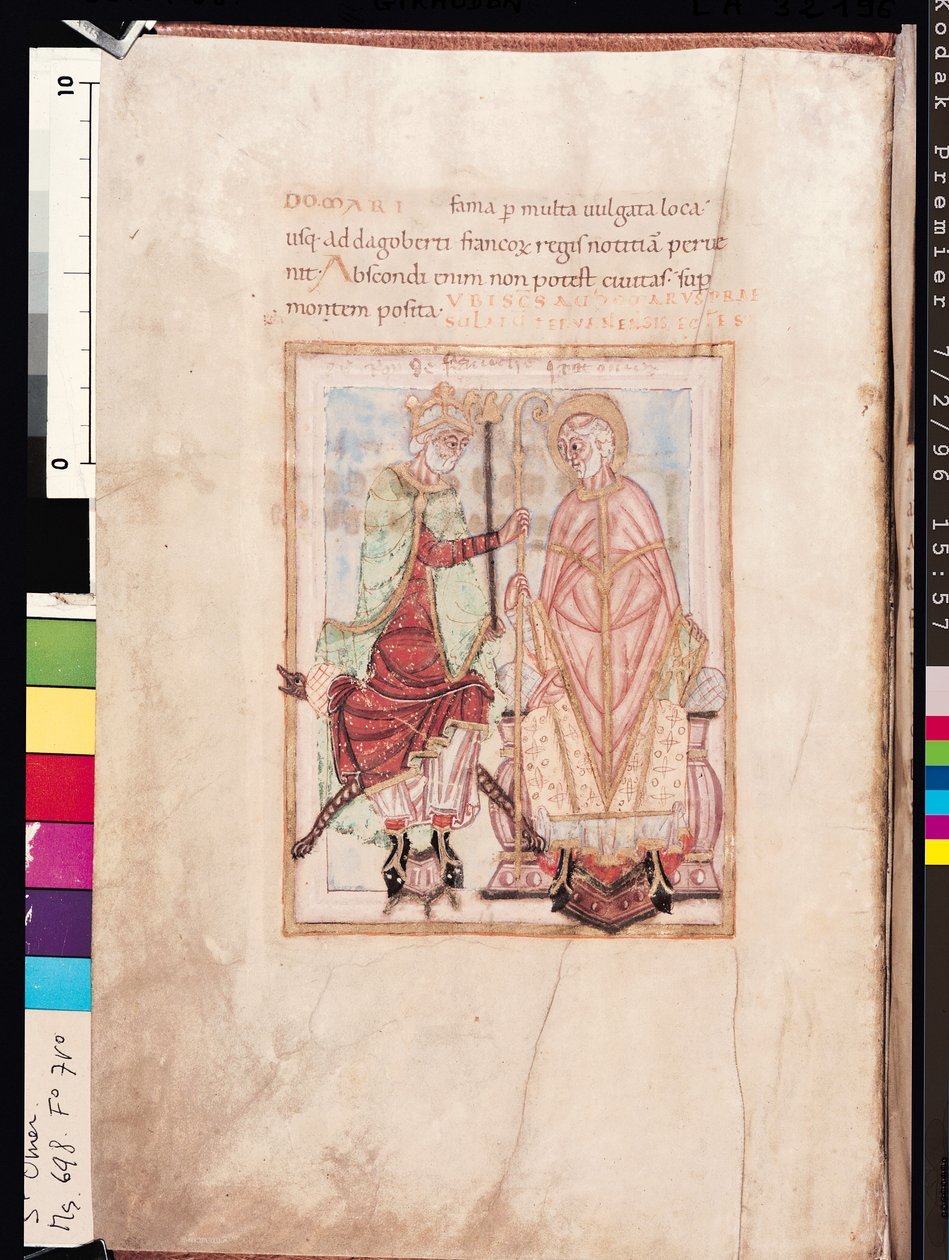 GIRAUDON
LA 32196
DOMARI fama ꝑ multa uulgata loca·
usq· ad dagoberti francoꝝ regis notitiā perue
nit· Abscondi enim non potest ciuitas· sup
montem posita· VBI SC̄S AUDOMARVS PRAE
SVLATŪ TERVANENSIS
10
0
Kodak Premier 7/2/96 15:57
St Omer.
Ms. 698. Fo 7ro